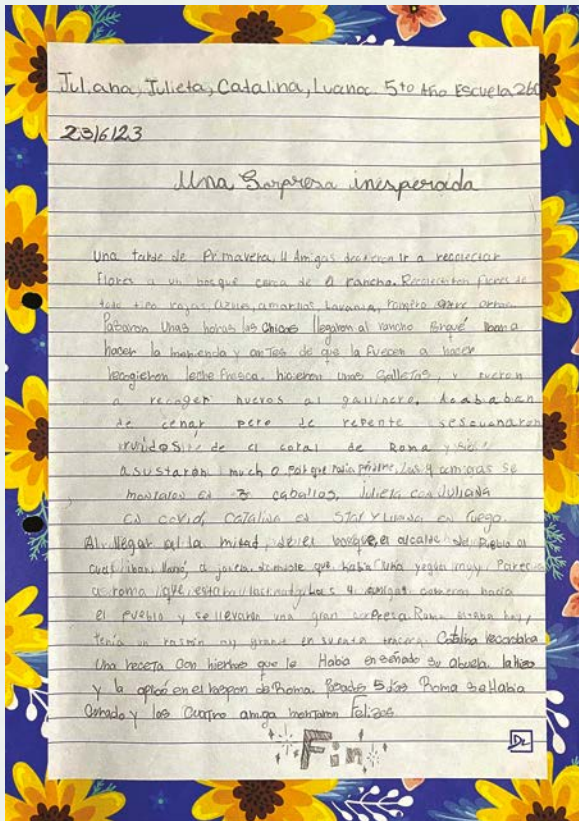 Juliana, Julieta, Catalina, Luana. 5to Año Escuela 260
23/6/23
Una Sorpresa inesperada
Una tarde de Primavera, 4 Amigas decidieron ir a recolectar
Flores a un bosque cerca de el rancho. Recolectaron Flores de
todo tipo rojas, azules, amarillas, Lavanda, romero entre otras.
Pasaron Unas horas las chicas llegaron al rancho iban a
hacer la merienda y antes de que la fuecen a hacer
recogieron leche fresca. hicieron unas Galletas, y fueron
a recoger huevos al gallinero. Acababan
de cenar pero de repente sescucharon
de el coral de Roma y
asustaron mucho Porque las 4 amigas se
montaron en 3 caballos, Julieta con Juliana
en covid, Catalina en Star y Luana en Fuego.
Al llegar a la mitad del bosque, el alcalde del Pueblo al
cual iban que había una yegua muy
a roma que estaba lastimada, Las 4 amigas hacia
el pueblo y se llevaron una gran sorpresa. Roma
tenía un muy grande en su Catalina recordaba
Una receta con hierbas que le Había enseñado su abuela, la hizo
y la aplicó en el de Roma. Pasados 5 días Roma se Había
Curado y las cuatro amiga montaron Felizes
Fin
DL